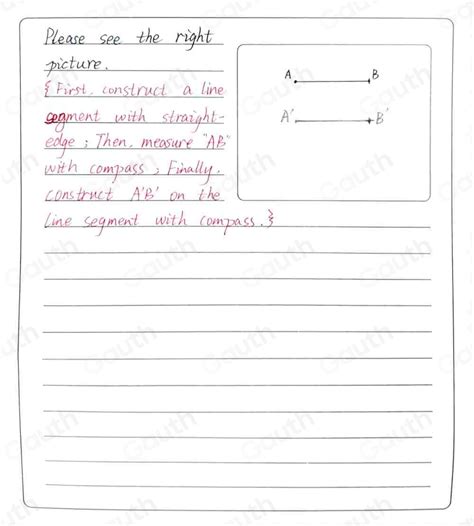 Please see the right
picture.
{First, construct a line
segment with straight-
edge; Then, measure "AB"
with compass; Finally,
construct A'B' on the
line segment with compass.}
A B
A' B'
Gauth